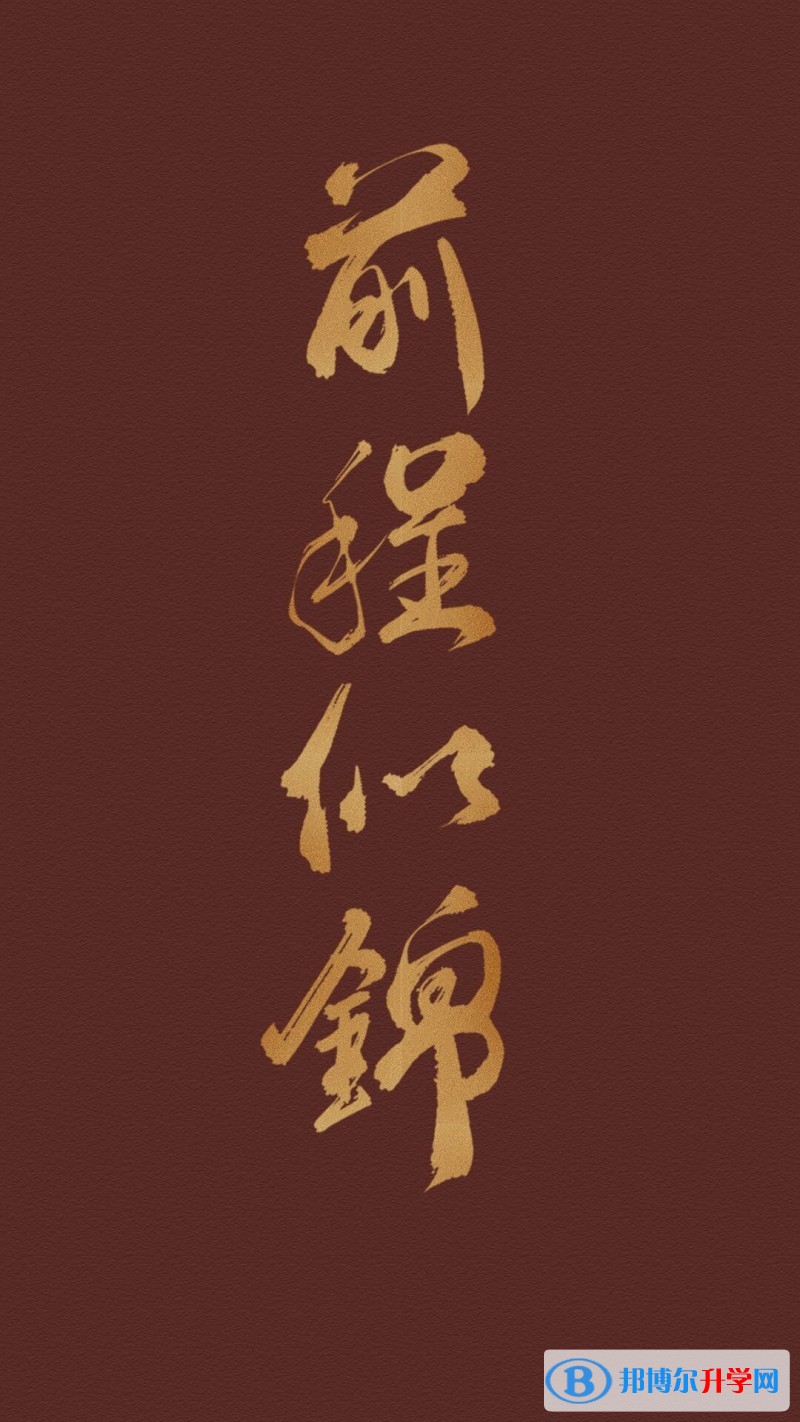 前程似錦
B 邦博尔升学网